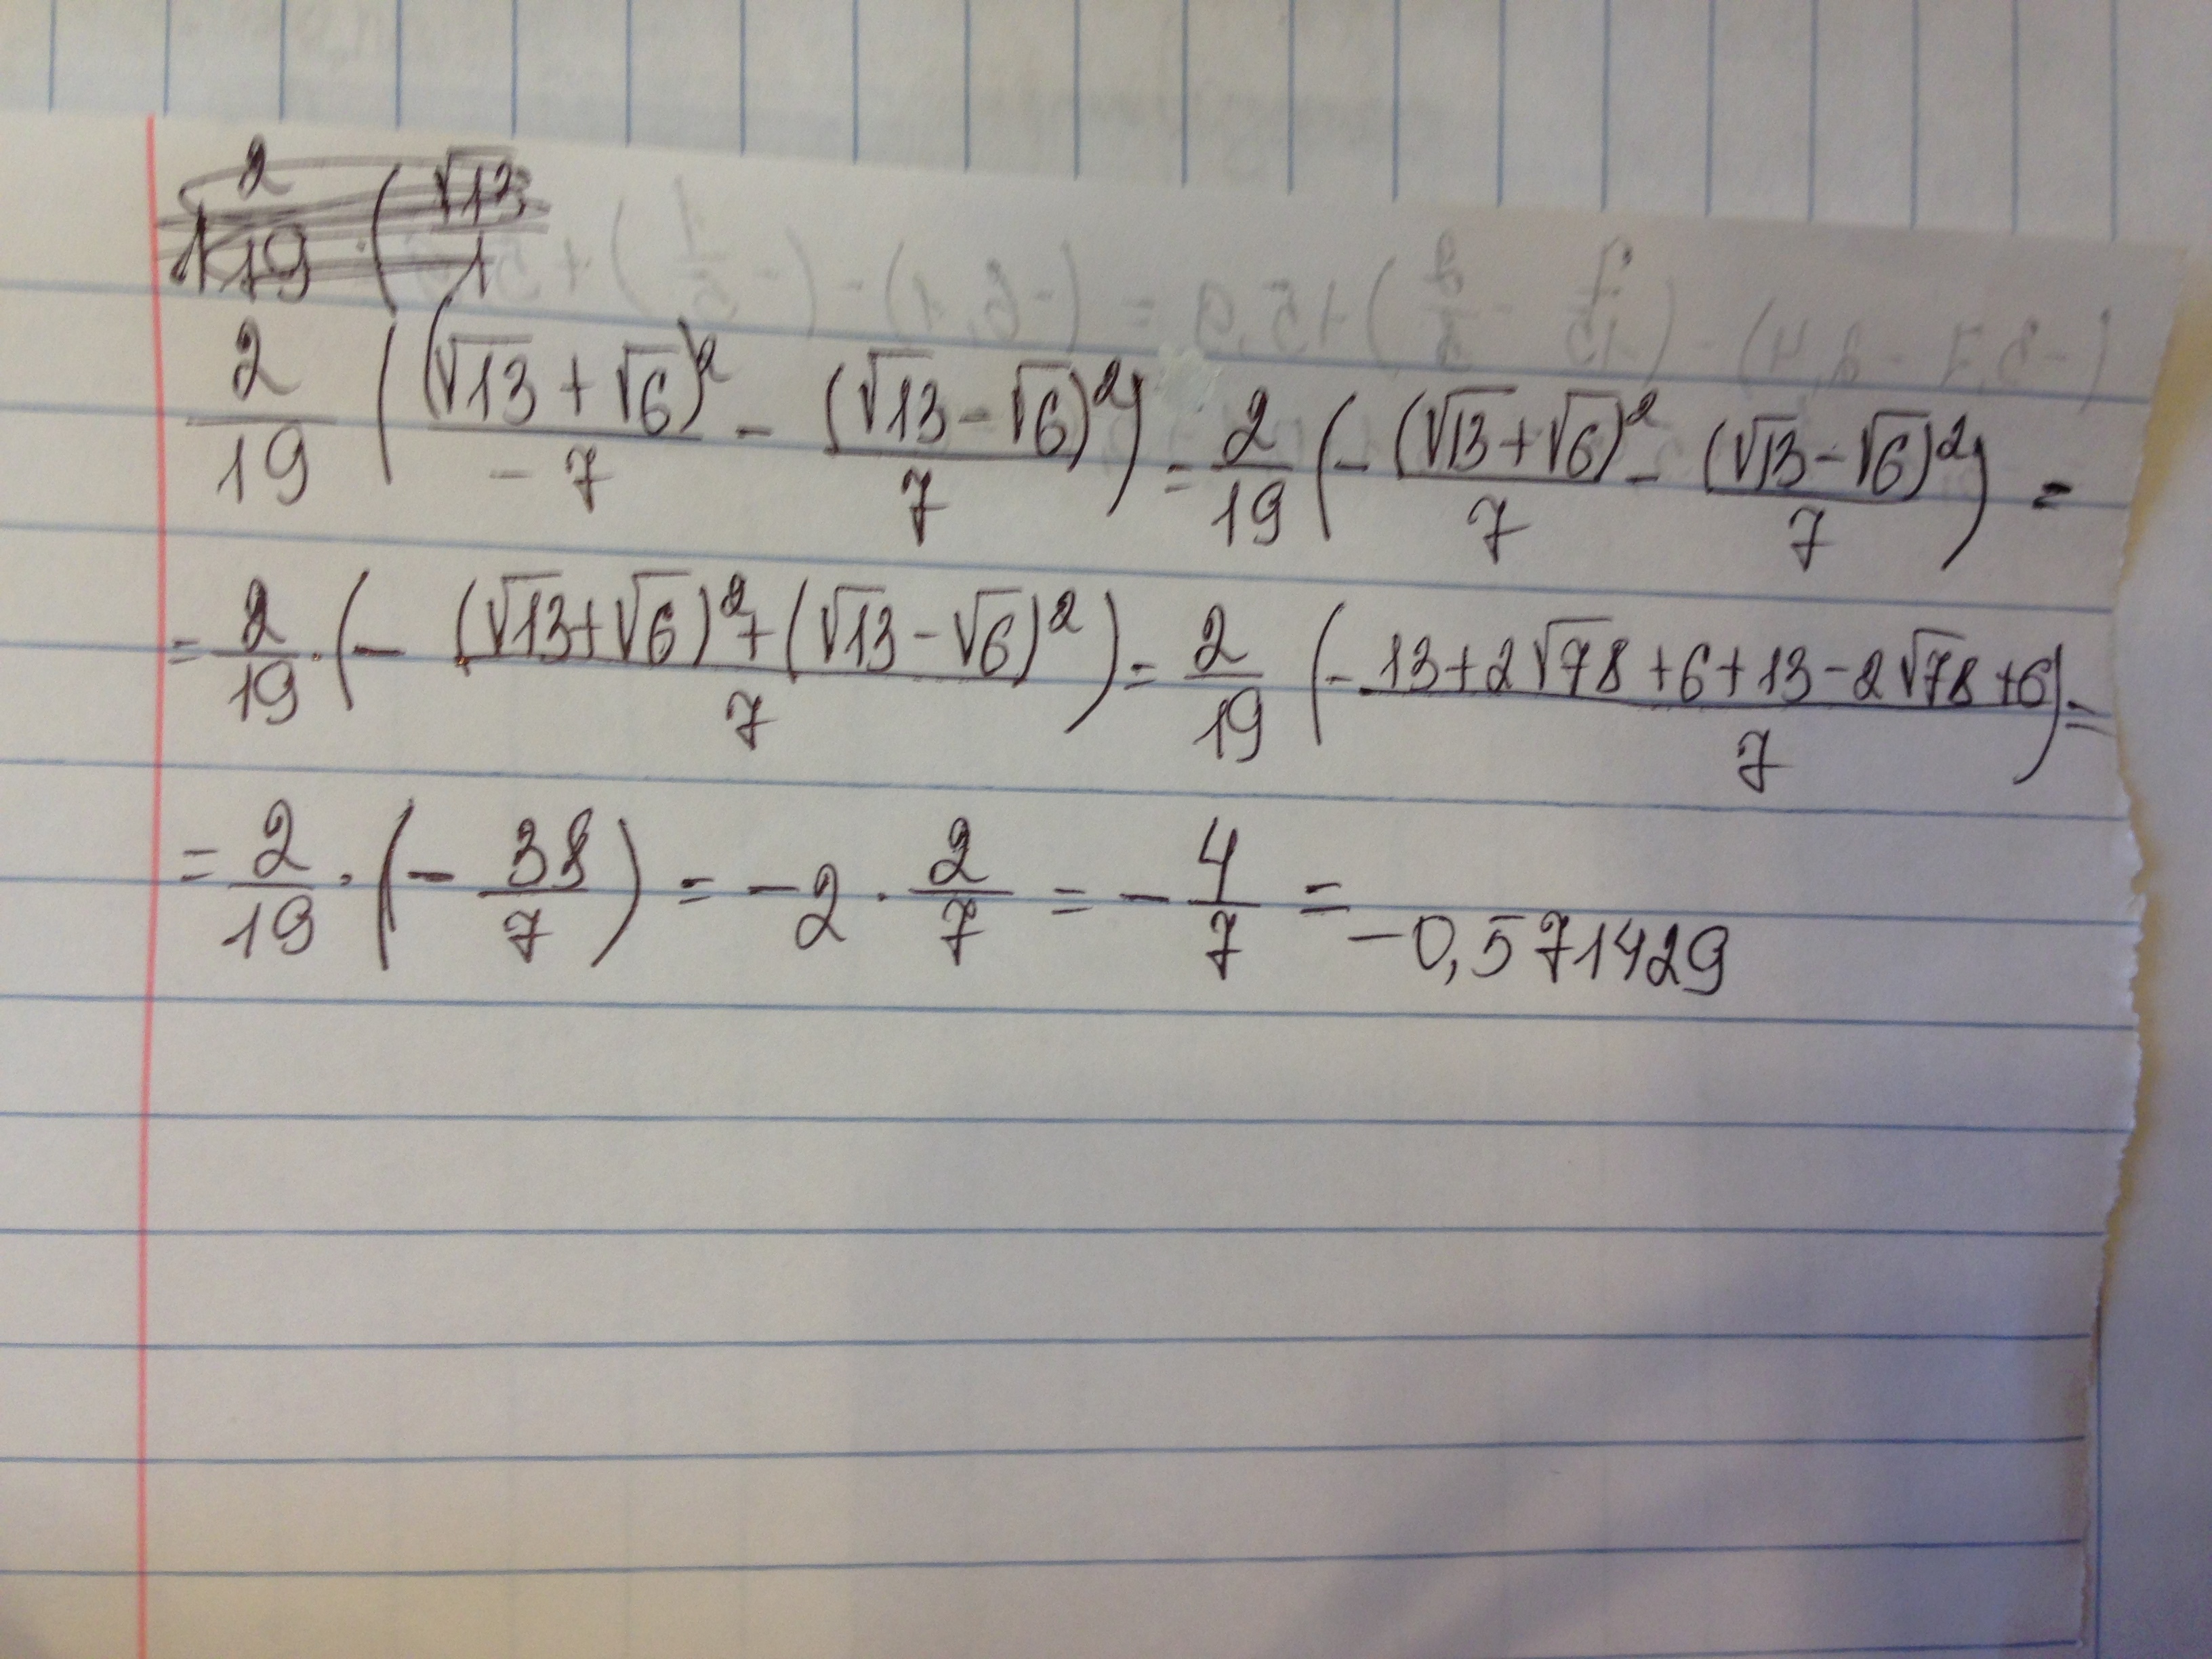 2/19 · ( √13/1
2/19 ( (√13+√6)²/-7 - (√13-√6)²/7 ) = 2/19 ( - (√13+√6)²/7 - (√13-√6)²/7 ) =
= 2/19 · ( - ((√13+√6)²+(√13-√6)²)/7 ) = 2/19 ( - (13+2√78+6+13-2√78+6)/7 ) =
= 2/19 · ( - 38/7 ) = -2 · 2/7 = - 4/7 = -0,571429